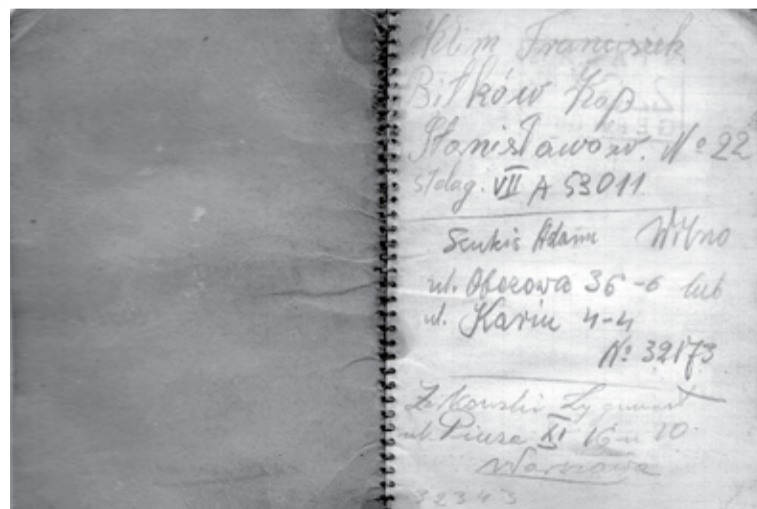 Klim Franciszek
Bitków Kop
Stanisławow. № 22
Stalag. VII A 53011
Scukis Adam Wilno
ul. Obozowa 36-6 lub
ul. 4-4
№ 32173
Zygmunt
ul. Piusa XI 16 m 10
Warszawa
32343